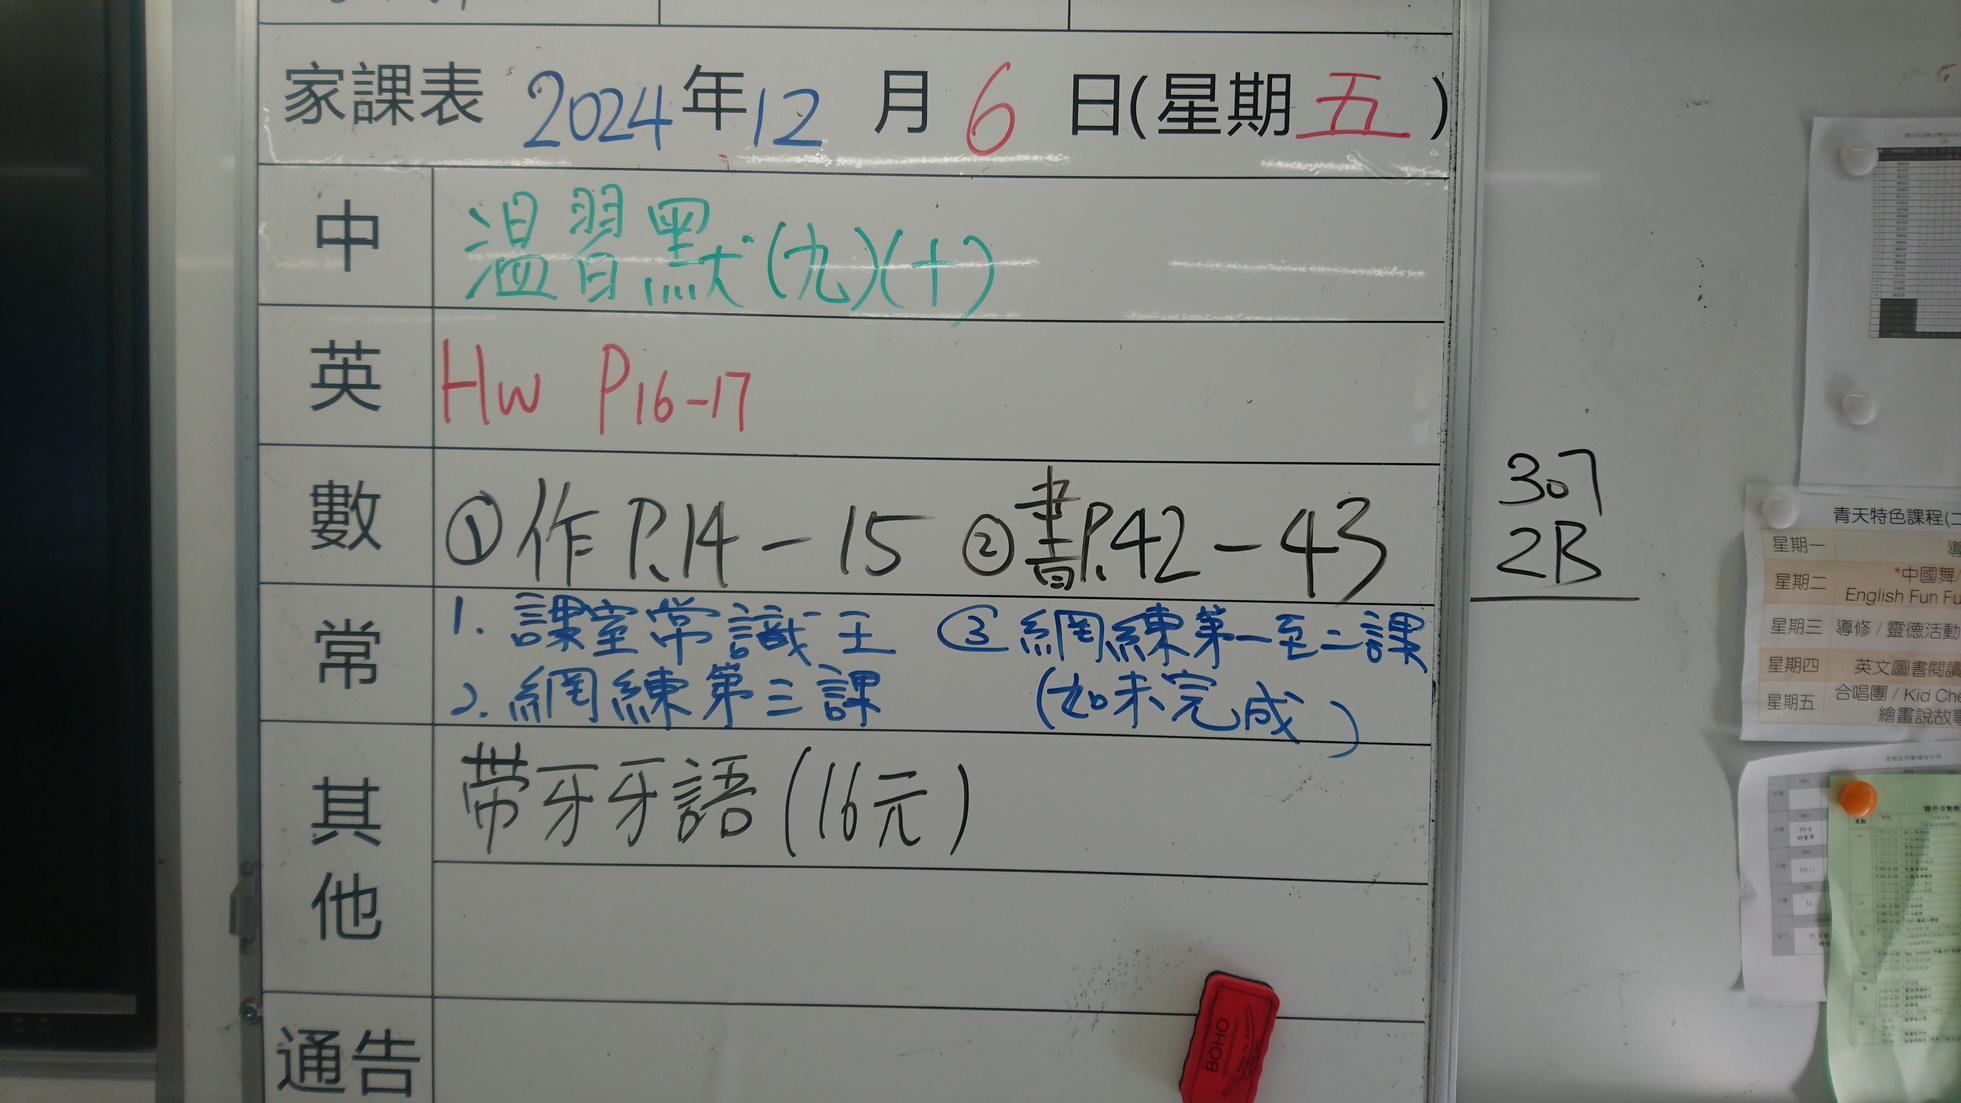 家課表 2024年12月6日(星期五)
中 温習默(九)(十)
英 HW P16-17
數 ①作 P.14-15 ②書P.42-43
常 1. 課室常識王 ③網練第一至二課
2. 網練第三課 (如未完成)
其他 帶牙牙語(16元)
通告
307
2B
青天特色課程(二
星期一 導
星期二 *中國舞/
English Fun Fu
星期三 導修/靈德活動
星期四 英文圖書閱讀
星期五 合唱團/Kid Che
繪畫說故事
BOHO